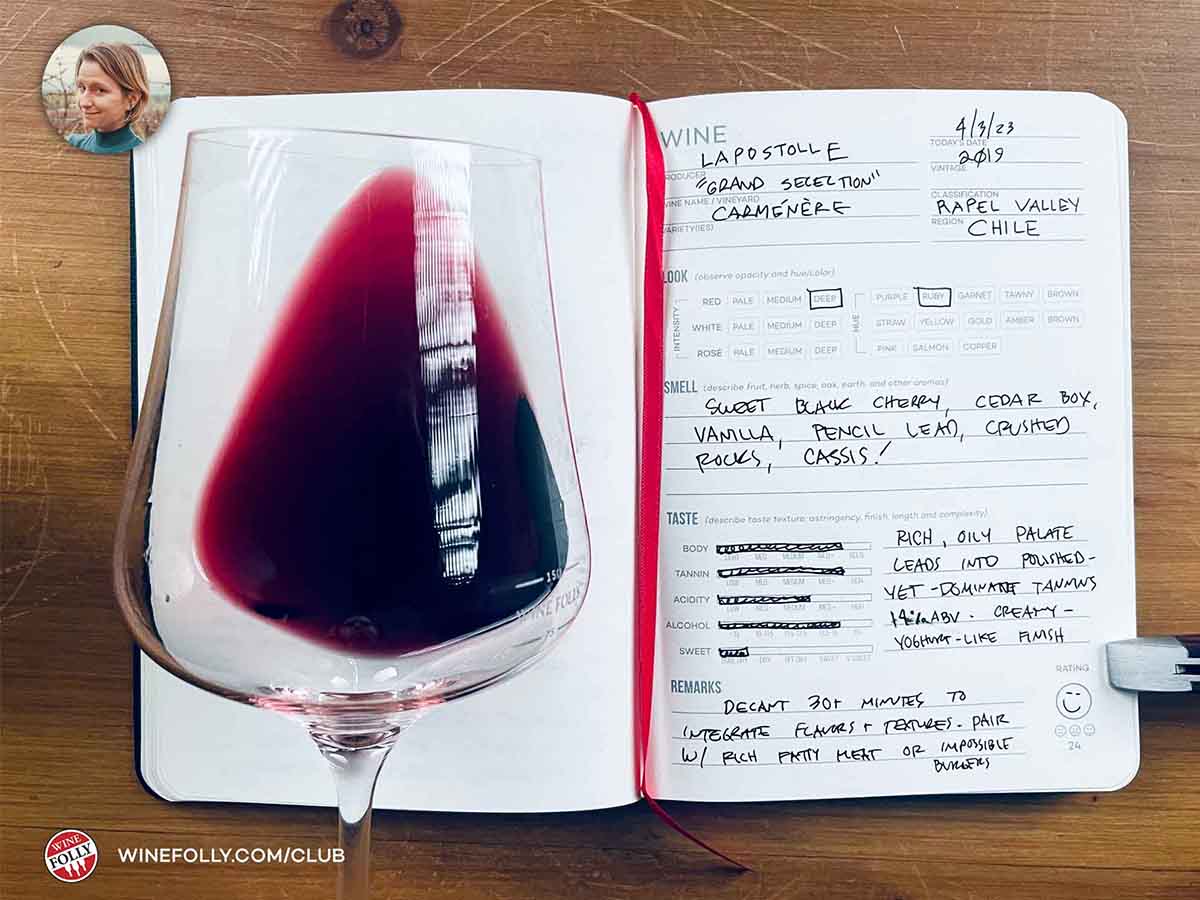 WINE
4/3/23
TODAY'S DATE
LAPOSTOLLE
2019
PRODUCER
VINTAGE
"GRAND SELECTION"
WINE NAME / VINEYARD
CLASSIFICATION
CARMÉNÈRE
RAPEL VALLEY
VARIETY(IES)
REGION
CHILE
LOOK (observe opacity and hue/color)
INTENSITY
RED PALE MEDIUM DEEP
WHITE PALE MEDIUM DEEP
ROSÉ PALE MEDIUM DEEP
HUE
PURPLE RUBY GARNET TAWNY BROWN
STRAW YELLOW GOLD AMBER BROWN
PINK SALMON COPPER
SMELL (describe fruit, herb, spice, oak, earth, and other aromas)
SWEET BLACK CHERRY, CEDAR BOX,
VANILLA, PENCIL LEAD, CRUSHED
ROCKS, CASSIS!
TASTE (describe taste texture, astringency, finish, length and complexity)
BODY
TANNIN
ACIDITY
ALCOHOL
SWEET
RICH, OILY PALATE
LEADS INTO POLISHED-
YET-DOMINATE TANNINS
ABV. CREAMY-
YOGHURT-LIKE FINISH
REMARKS
DECANT 30+ MINUTES TO
INTEGRATE FLAVORS + TEXTURES. PAIR
W/ RICH FATTY MEAT OR IMPOSSIBLE
BURGERS
RATING
24
WINE FOLLY
75
WINE
FOLLY
WINEFOLLY.COM/CLUB